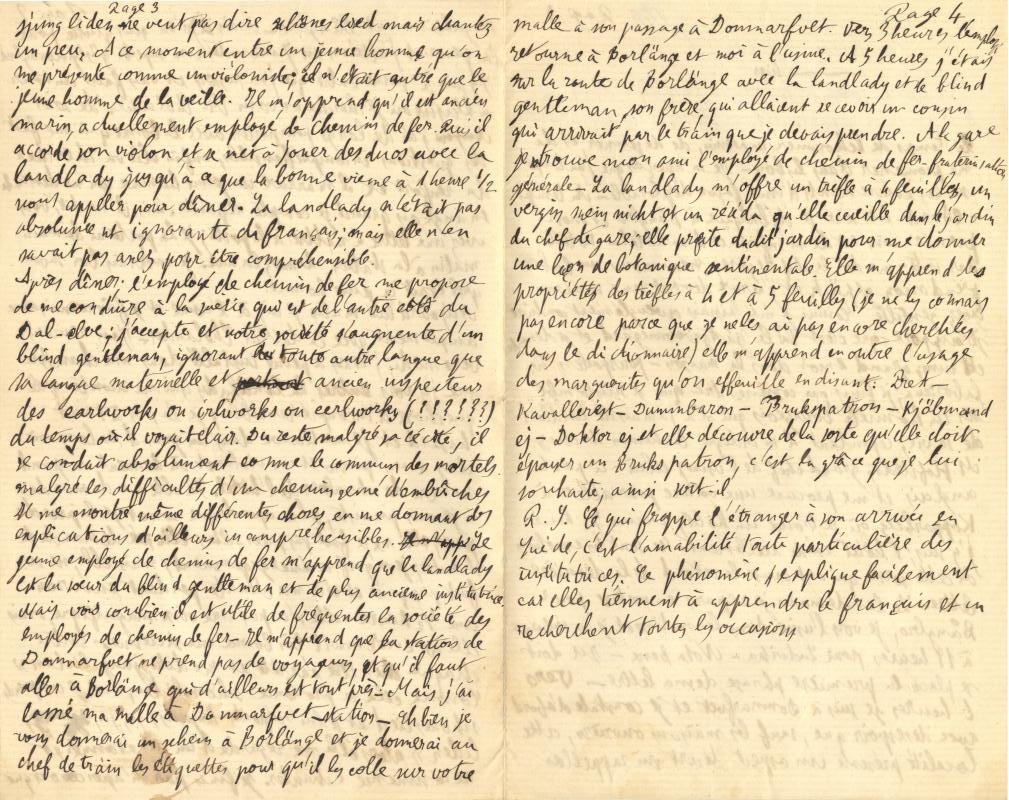 Page 3
sjung liden ne veut pas dire schönes Lied mais chantez
un peu. A ce moment entre un jeune homme qu'on
me présente comme un violoniste; il n'était autre que le
jeune homme de la veille. Il m'apprend qu'il est ancien
marin, actuellement employé de chemin de fer. Puis il
accorde son violon et se met à jouer des duos avec la
landlady jusqu'à ce que la bonne vienne à 1 heure 1/2
nous appeler pour dîner. La landlady n'était pas
absolument ignorante du français; mais elle n'en
savait pas assez pour être compréhensible.
Après dîner, l'employé de chemin de fer me propose
de me conduire à la scierie qui est de l'autre côté du
Dal-elve; j'accepte et notre société s'augmente d'un
blind gentleman, ignorant toute autre langue que
sa langue maternelle et ancien inspecteur
des earlworks ou irlworks ou eerlworks (!?!?!?)
du temps où il voyait clair. Du reste malgré sa cécité, il
se conduit absolument comme le commun des mortels.
malgré les difficultés d'un chemin semé d'embûches
Il me montre même différentes choses en me donnant des
explications d'ailleurs incompréhensibles. Le
jeune employé de chemin de fer m'apprend que la landlady
est la sœur du blind gentleman et de plus ancienne institutrice.
Mais voici combien il est utile de fréquenter la société des
employés de chemin de fer - Il m'apprend que la station de
Domnarfvet ne prend pas de voyageurs, et qu'il faut
aller à Borlänge qui d'ailleurs est tout près - Mais j'ai
laissé ma malle à Domnarfvet-station - Eh bien je
vous donnerai un schein à Borlänge et je donnerai au
chef de train les étiquettes pour qu'il les colle sur votre
Page 4
malle à son passage à Domnarfvet. Vers 3 heures l'employé
retourne à Borlänge et moi à l'usine. A 5 heures j'étais
sur la route de Borlänge avec la landlady et le blind
gentleman, son frère, qui allaient recevoir un cousin
qui arrivait par le train que je devais prendre. A la gare
je trouve mon ami l'employé de chemin de fer - fraternisation
générale - La landlady m'offre un trèfle à 4 feuilles, un
vergiss mein nicht et un réséda qu'elle cueille dans le jardin
du chef de gare; elle profite dudit jardin pour me donner
une leçon de botanique sentimentale. Elle m'apprend les
propriétés des trèfles à 4 et à 5 feuilles (je ne les connais
pas encore parce que je ne les ai pas encore cherchées
dans le dictionnaire) elle m'apprend en outre l'usage
des marguerites qu'on effeuille en disant: Prest -
Kavallerist - Dummbaron - Brukspatron - Kjöbmand
ej - Doktor ej et elle découvre de la sorte qu'elle doit
épouser un Brukspatron, c'est la grâce que je lui
souhaite; ainsi soit-il
Ce qui frappe l'étranger à son arrivée en
Suède, c'est l'amabilité toute particulière des
institutrices. Ce phénomène s'explique facilement
car elles tiennent à apprendre le français et en
recherchent toutes les occasions